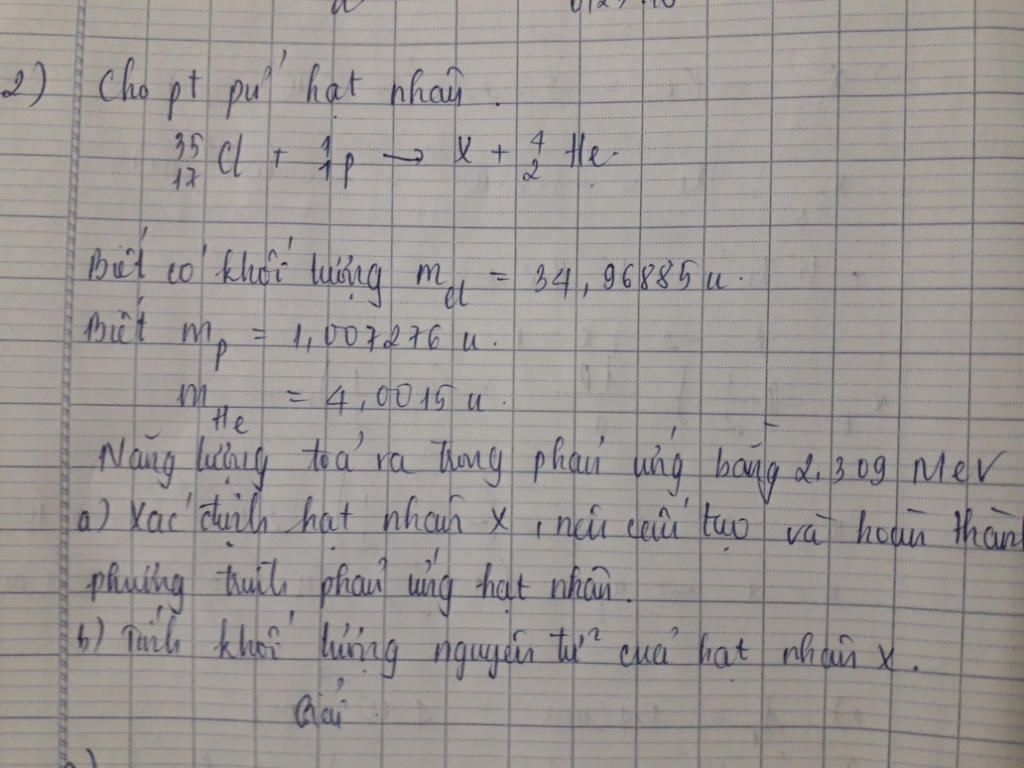 2) Cho pt pứ hạt nhân.
³⁵₁₇Cl + ¹₁p → X + ⁴₂He.
Biết có khối lượng m_cl = 34,96885 u.
Biết m_p = 1,007276 u.
m_He = 4,0015 u.
Năng lượng toả ra trong phản ứng bằng 2,309 MeV
a) Xác định hạt nhân X, nêu cấu tạo và hoàn thàn
phương trình phản ứng hạt nhân.
b) Tính khối lượng nguyên tử của hạt nhân X.
Giải